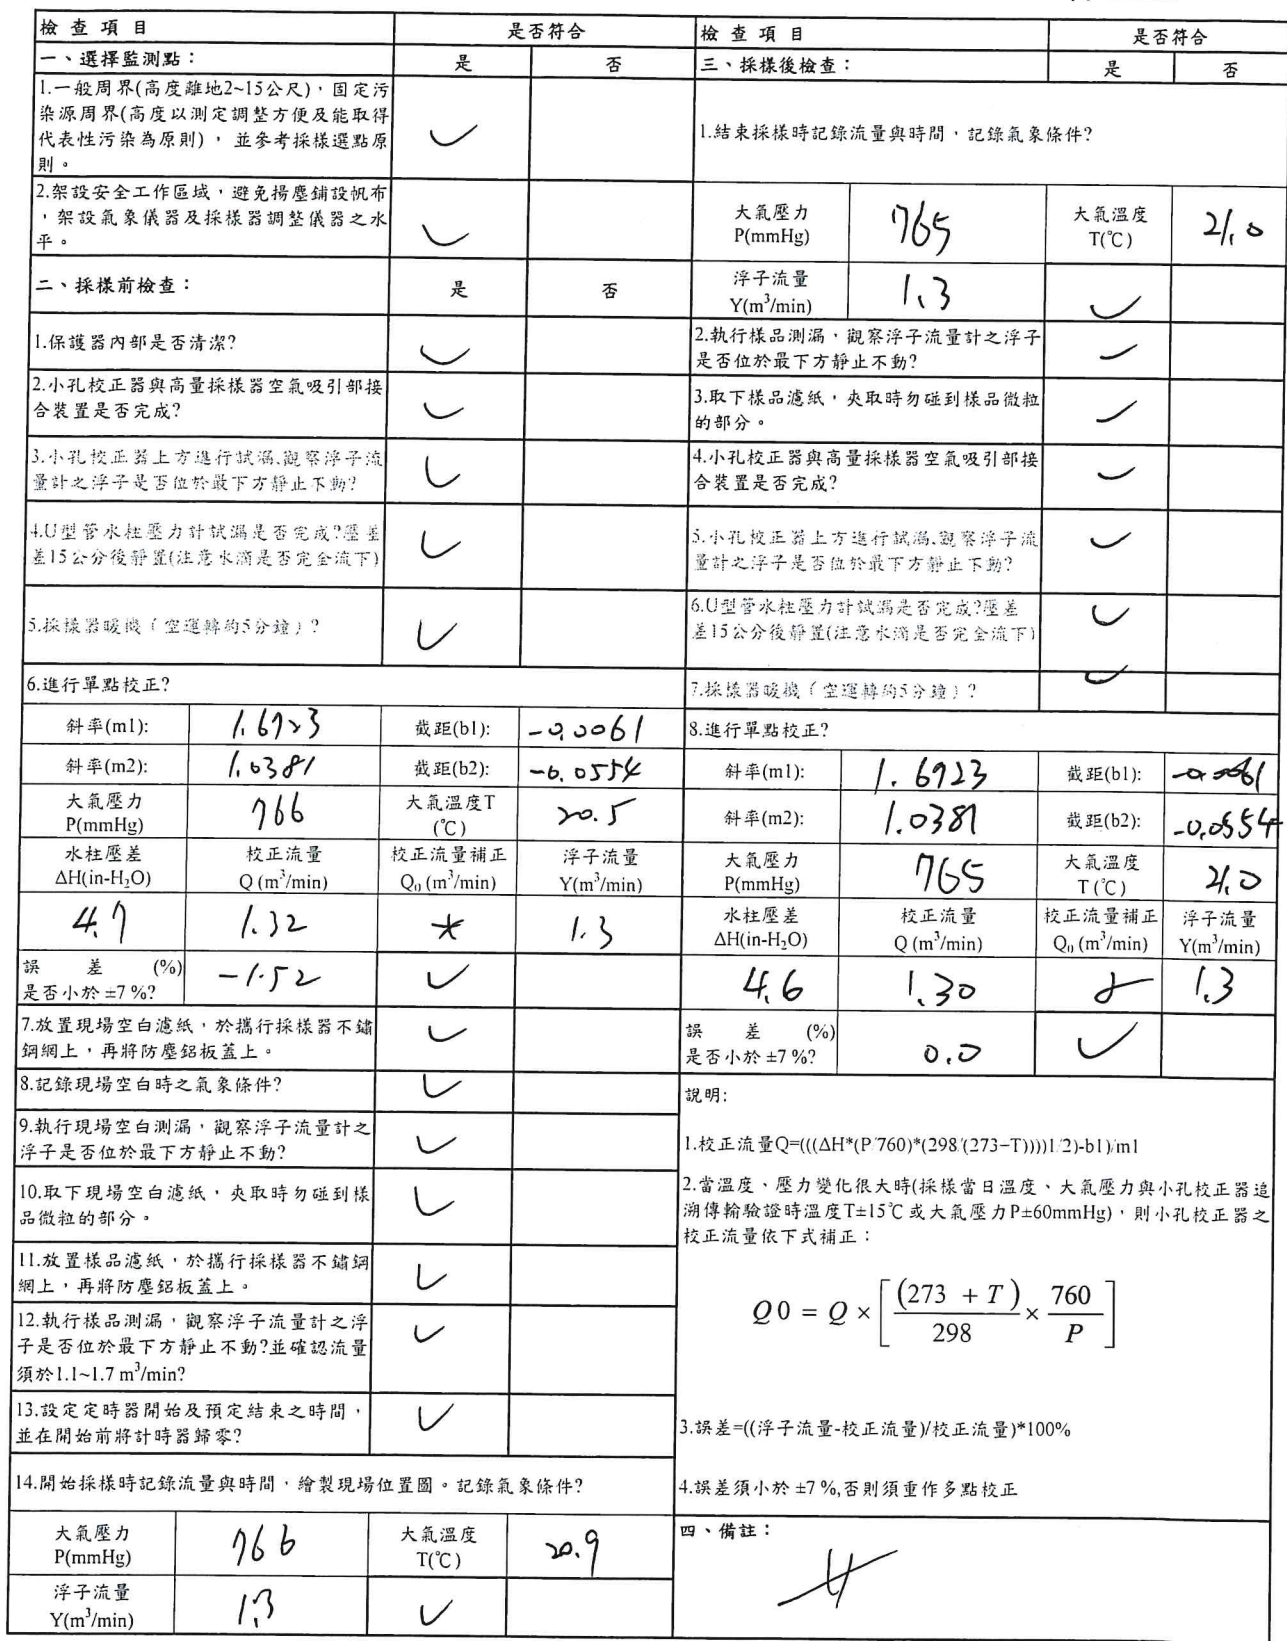 檢 查 項 目 是否符合
一、選擇監測點： 是 否
1.一般周界(高度離地2~15公尺)，固定污
染源周界(高度以測定調整方便及能取得
代表性污染為原則)， 並參考採樣選點原
則。
2.架設安全工作區域，避免揚塵鋪設帆布
，架設氣象儀器及採樣器調整儀器之水
平。
二、採樣前檢查： 是 否
1.保護器內部是否清潔?
2.小孔校正器與高量採樣器空氣吸引部接
合裝置是否完成?
3.小孔校正器上方進行試漏,觀察浮子流
量計之浮子是否位於最下方靜止不動?
4.U型管水柱壓力計試漏是否完成?壓差
差15公分後靜置(注意水滴是否完全流下)
5.採樣器暖機（空運轉約5分鐘）?
6.進行單點校正?
斜率(m1): 1.6923 截距(b1): -0.0061
斜率(m2): 1.0381 截距(b2): -0.0554
大氣壓力 766 大氣溫度T 20.5
P(mmHg) (℃)
水柱壓差 校正流量 校正流量補正 浮子流量
ΔH(in-H₂O) Q (m³/min) Q₀ (m³/min) Y(m³/min)
4.7 1.32 1.3
誤 差 (%) -1.52
是否小於 ±7 %?
7.放置現場空白濾紙，於攜行採樣器不鏽
鋼網上，再將防塵鋁板蓋上。
8.記錄現場空白時之氣象條件?
9.執行現場空白測漏，觀察浮子流量計之
浮子是否位於最下方靜止不動?
10.取下現場空白濾紙，夾取時勿碰到樣
品微粒的部分。
11.放置樣品濾紙，於攜行採樣器不鏽鋼
網上，再將防塵鋁板蓋上。
12.執行樣品測漏，觀察浮子流量計之浮
子是否位於最下方靜止不動?並確認流量
須於1.1~1.7 m³/min?
13.設定定時器開始及預定結束之時間，
並在開始前將計時器歸零?
14.開始採樣時記錄流量與時間，繪製現場位置圖。記錄氣象條件?
大氣壓力 766 大氣溫度 20.9
P(mmHg) T(℃)
浮子流量 1.3
Y(m³/min)
檢 查 項 目 是否符合
三、採樣後檢查： 是 否
1.結束採樣時記錄流量與時間，記錄氣象條件?
大氣壓力 765 大氣溫度 21.0
P(mmHg) T(℃)
浮子流量 1.3
Y(m³/min)
2.執行樣品測漏，觀察浮子流量計之浮子
是否位於最下方靜止不動?
3.取下樣品濾紙，夾取時勿碰到樣品微粒
的部分。
4.小孔校正器與高量採樣器空氣吸引部接
合裝置是否完成?
5.小孔校正器上方進行試漏,觀察浮子流
量計之浮子是否位於最下方靜止不動?
6.U型管水柱壓力計試漏是否完成?壓差
差15公分後靜置(注意水滴是否完全流下)
7.採樣器暖機（空運轉約5分鐘）?
8.進行單點校正?
斜率(m1): 1.6923 截距(b1): -0.0061
斜率(m2): 1.0381 截距(b2): -0.0554
大氣壓力 765 大氣溫度 21.0
P(mmHg) T (℃)
水柱壓差 校正流量 校正流量補正 浮子流量
ΔH(in-H₂O) Q (m³/min) Q₀ (m³/min) Y(m³/min)
4.6 1.30 1.3
誤 差 (%) 0.0
是否小於 ±7 %?
說明:
1.校正流量Q=(((ΔH*(P/760)*(298/(273+T))))1/2)-b1)/m1
2.當溫度、壓力變化很大時(採樣當日溫度、大氣壓力與小孔校正器追
溯傳輸驗證時溫度T±15℃或大氣壓力P±60mmHg)，則小孔校正器之
校正流量依下式補正：
Q0 = Q × [ (273 + T) / 298 × 760 / P ]
3.誤差=((浮子流量-校正流量)/校正流量)*100%
4.誤差須小於 ±7 %,否則須重作多點校正
四、備註：